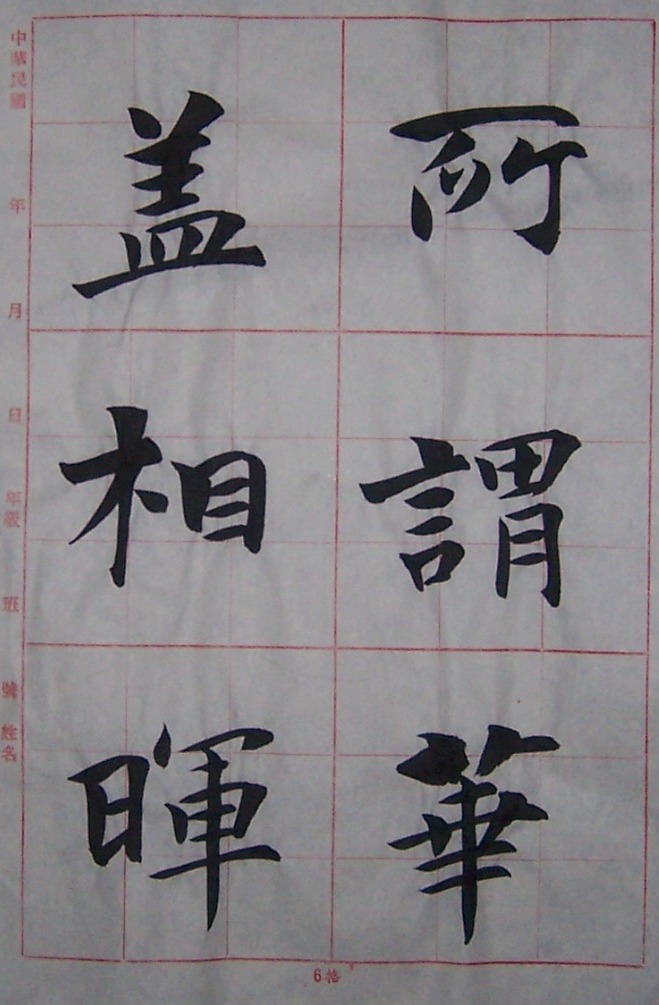 所謂華
盖相暉
中華民國 年 月 日 年級 班 號 姓名
6格